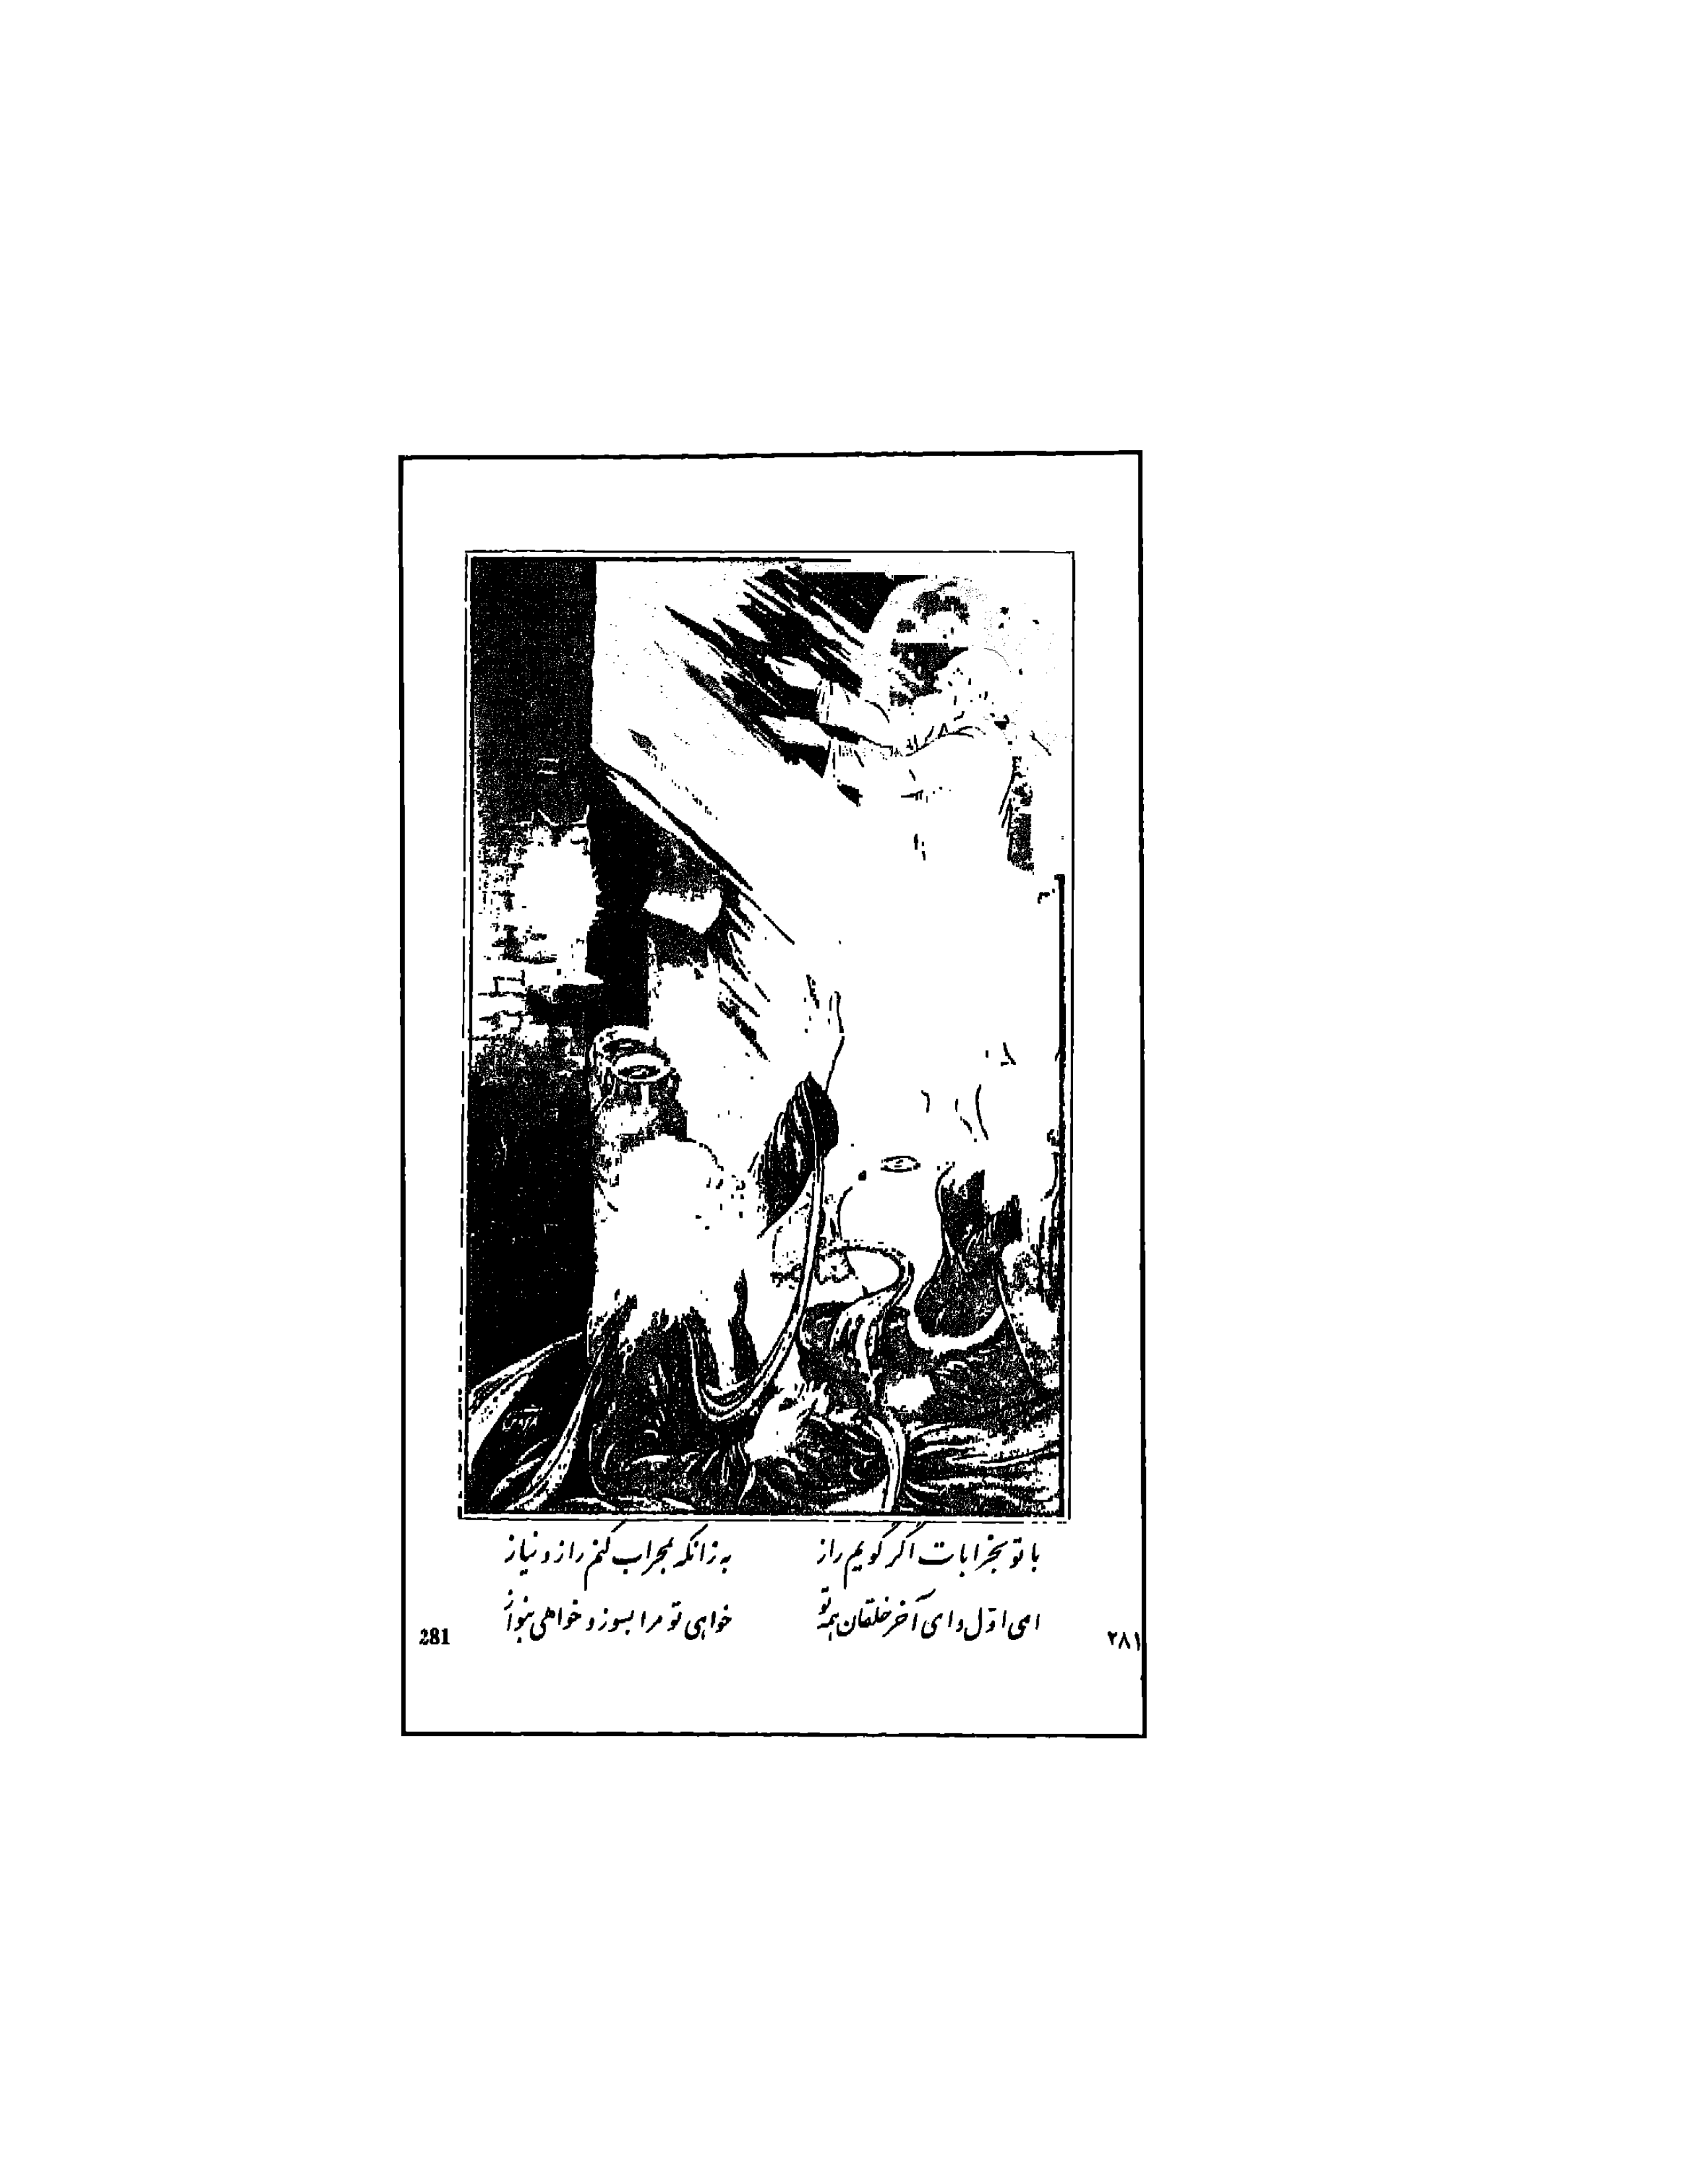 با تو بخرابات اگر گویم راز به زانکه بمحراب کنم راز و نیاز
ای اوّل و ای آخر خلقان همه تو خواهی تو مرا بسوز و خواهی بنواز
281 ۲۸۱